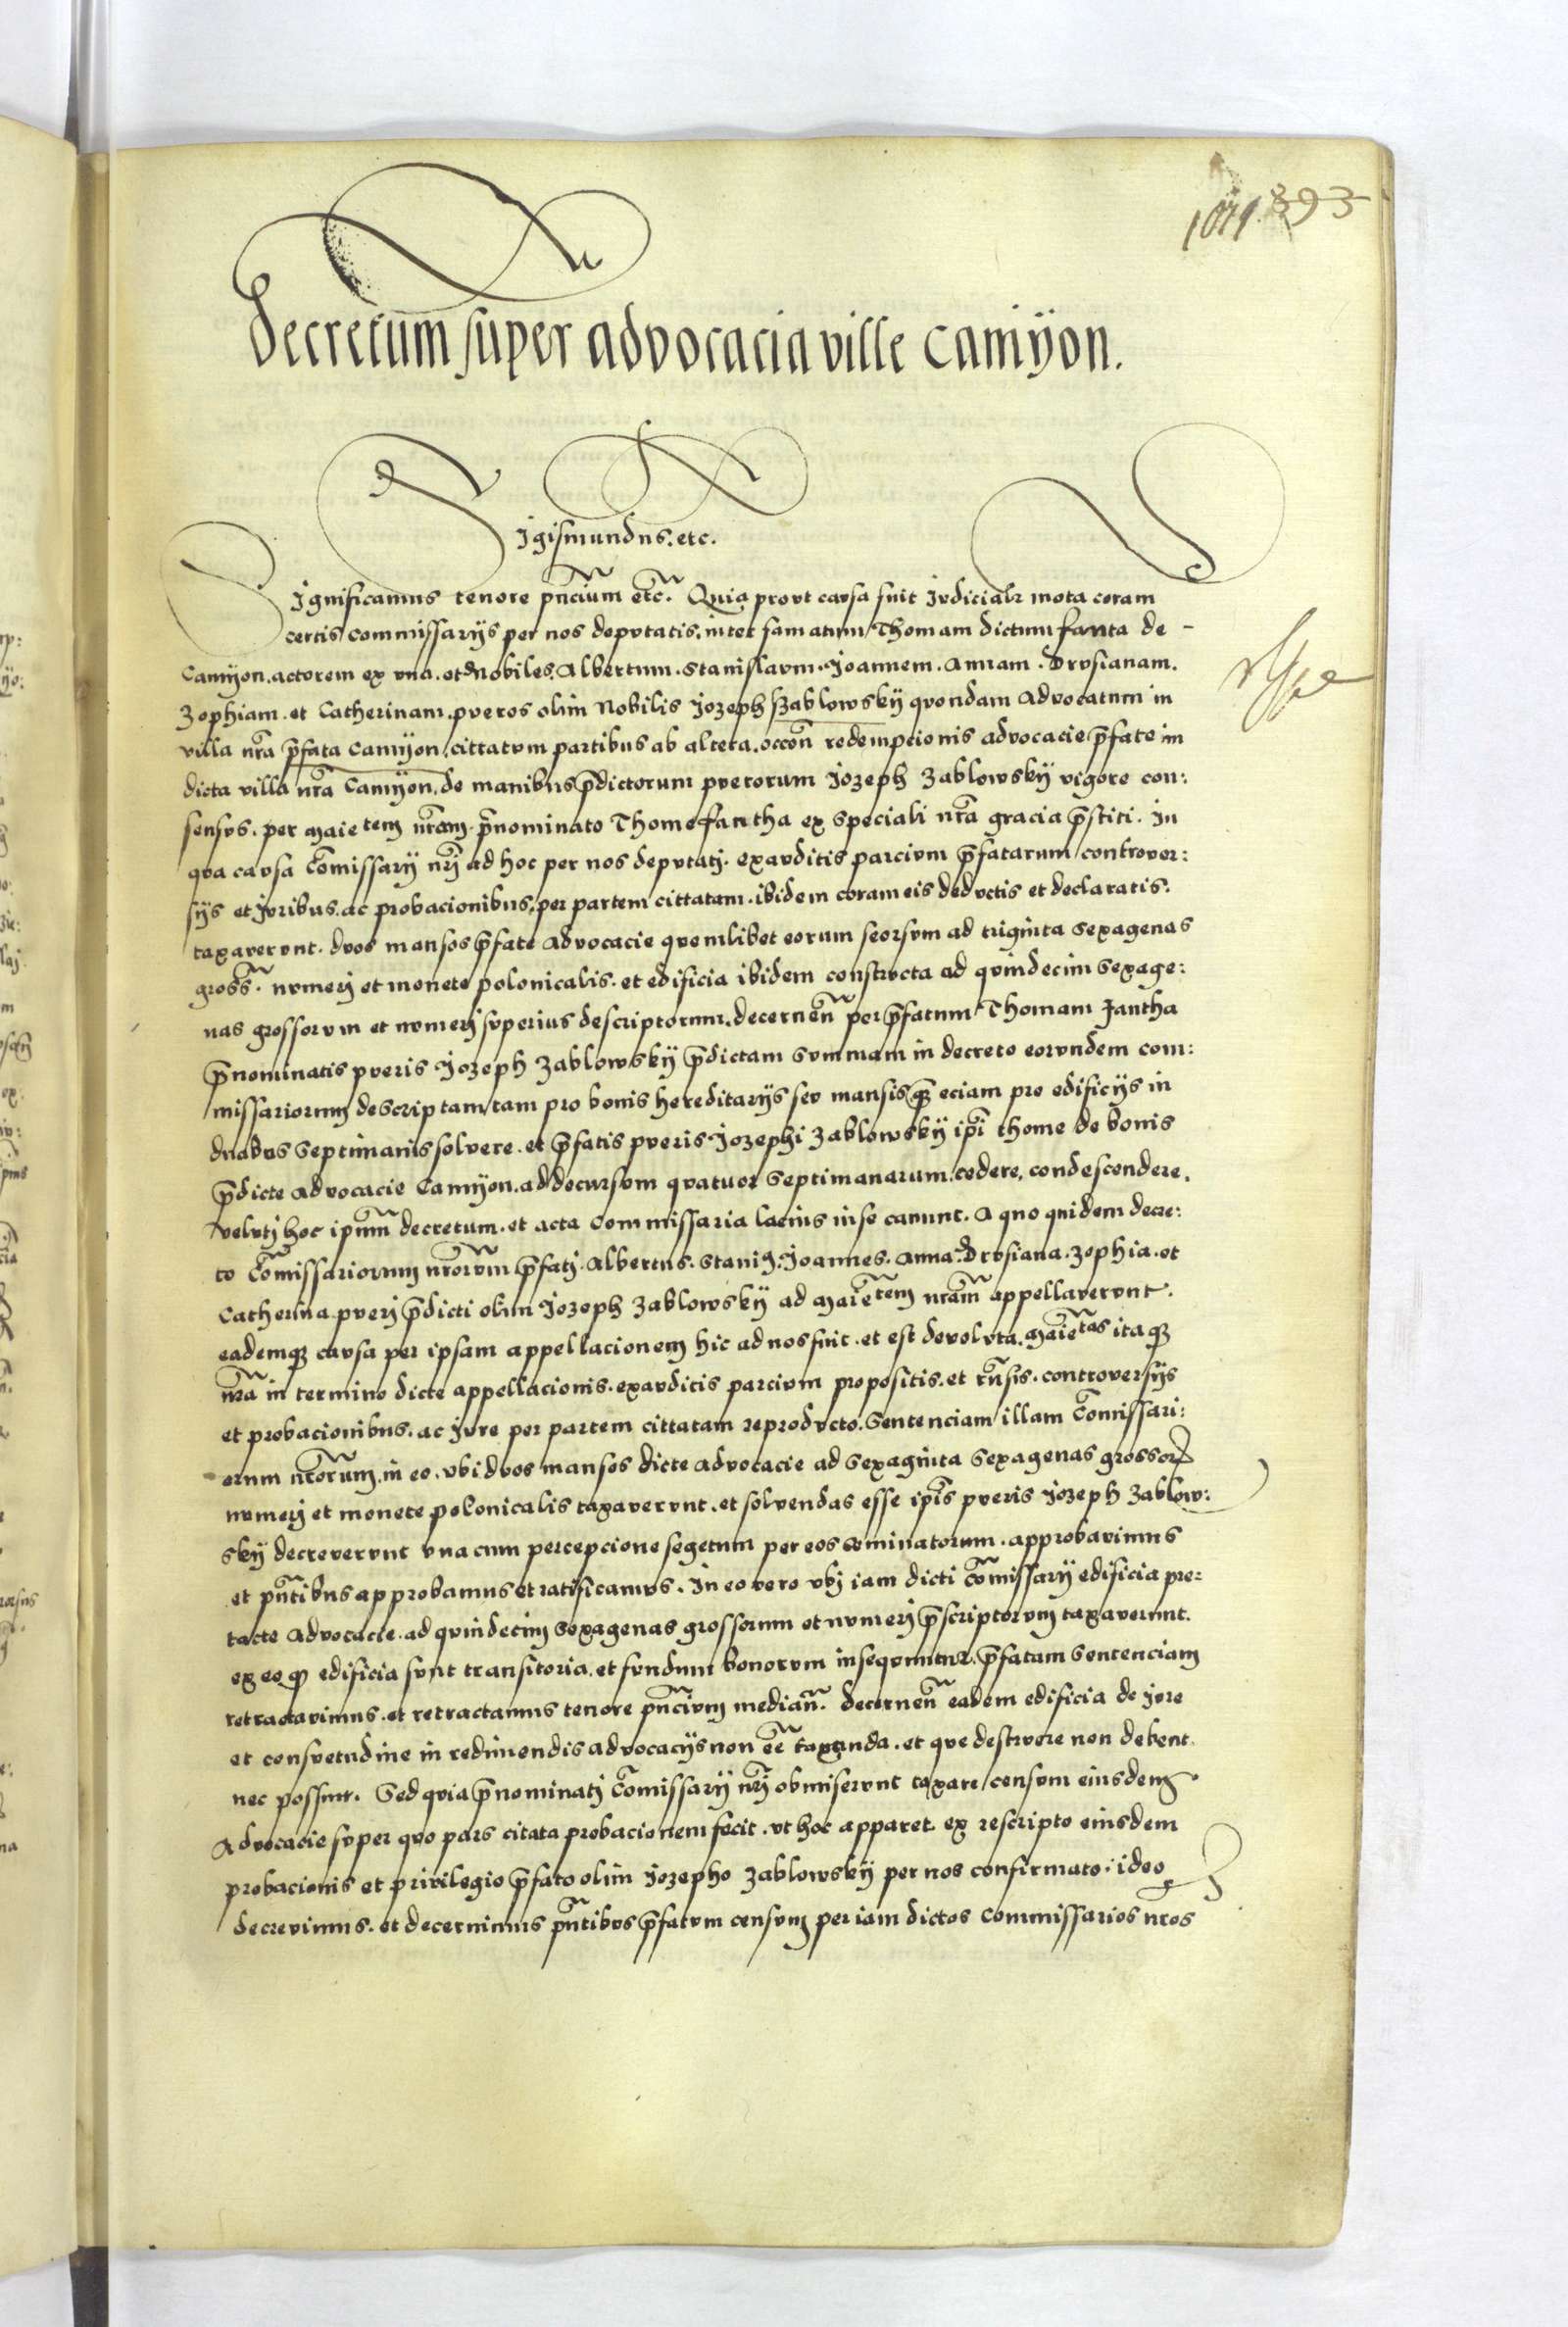 393
Decretum super advocacia ville Camÿon.
Sigismundus. etc.
Significamus tenore pñcium etc. Quia provt causa fuit Judicialr mota coram
certis commissarijs per nos deputatis. inter famatum Thomam dictum fanta de -
Camÿon. actorem ex vna. et Nobiles Albertum. Stanislaum. Joannem. Annam. Drusianam.
Zophiam. et Catherinam. pueros olim Nobilis Jozeph Zablowskÿ quondam Advocatum in
villa nr̃a p̃fata Camÿon. cittatum partibus ab altera. occon̄ redempcionis advocacie p̃fate in
dicta villa nr̃a Camÿon. de manibus p̃dictorum puerorum Jozeph Zablowskÿ vigore con:
sensus. per Maietem nr̃am. p̃nominato Thome fantha ex speciali nr̃a gracia p̃stiti. In
qua causa Com̃issarij nr̃j ad hoc per nos deputatj. exauditis parcium p̃fatarum controver:
sijs et Juribus. ac probacionibus. per partem cittatam. ibidem coram eis deductis et declaratis.
taxaverunt. duos mansos p̃fate Advocacie quemlibet eorum seorsum ad triginta sexagenas
gross̃. numerj et monete polonicalis. et edificia ibidem constructa ad quindecim sexage:
nas grossorum et numerj superius descriptorum. decernen̄ per p̃fatum Thomam Jantha
p̃nominatis pueris Jozeph Zablowskÿ p̃dictam summam in decreto eorundem com:
missariorum descriptam tam pro bonis hereditarijs seu mansis q̃ eciam pro edificijs in
duabus septimanis solvere. et p̃fatis pueris Jozephi Zablowskÿ ip̃i Thome de bonis
p̃dicte advocacie Camÿon. ad decursum quatuor septimanarum. cedere. condescendere.
velutj hoc ipm̃ decretum. et acta Commissaria lacius in se canunt. A quo quidem decre:
to Com̃issariorum nr̃orum p̃fatj. Albertus. Stani9. Joannes. Anna. Drusiana. Zophia. et
Catherina puerj p̃dicti olim Jozeph Zablowskÿ ad Maietem nr̃am appellaverunt.
eademq3 causa per ipsam appellacionem hic ad nos fuit. et est devoluta. Maietas itaq3
nr̃a in termino dicte appellacionis. exauditis parcium propositis. et rñsis. controversijs
et probacionibus. ac Jure per partem cittatam reproducto. Sentenciam illam Com̃issari:
orum nr̃orum. in eo. vbi duos mansos dicte Advocacie ad sexaginta sexagenas grossor
numerj et monete polonicalis taxaverunt. et solvendas esse ip̃is pueris Jozeph Zablow:
skÿ decreverunt vna cum percepcione segetum per eos seminatorum. approbavimus
et pñtibus approbamus et ratificamus. In eo vero vbj iam dicti Com̃issarij edificia pre:
tacte Advocacie. ad quindecim sexagenas grossorum et numerj p̃scriptorum taxaverunt.
ex eo q̃ edificia sunt transitoria. et fundum bonorum insequuntur. p̃fatam sentenciam
retractavimus. et retractamus tenore pñcium median̄. Decernen̄ eadem edificia de Jure
et consuetudine in redimendis advocacijs non eē taxanda. et que destruere non debent
nec possunt. Sed quia p̃nominatj Com̃issarij nr̃j obmiserunt taxare censum eiusdem
Advocacie super quo pars citata probacionem fecit. vt hoc apparet ex rescripto eiusdem
probacionis et privilegio p̃fato olim Jozepho Zablowskÿ per nos confirmato. ideo
decrevimus. et decernimus pñtibus p̃fatum censum per iam dictos Commissarios nr̃os